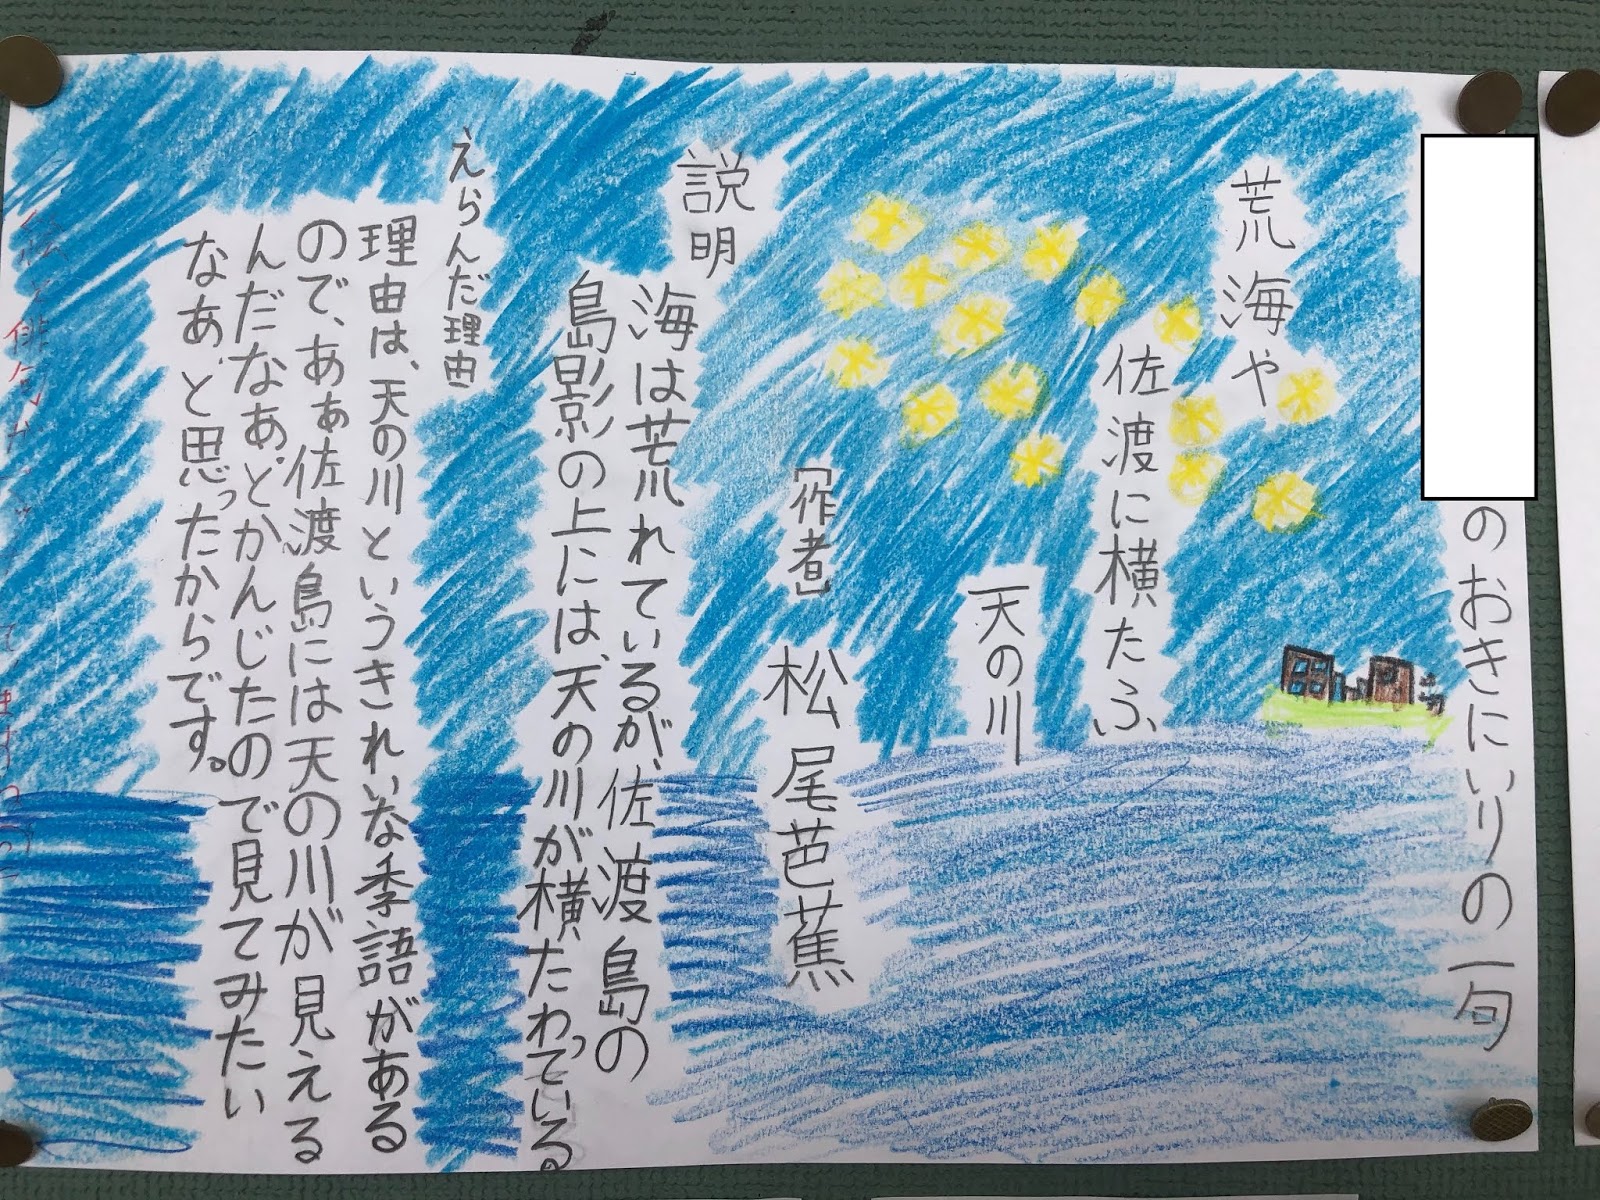 のおきにいりの一句
荒海や
佐渡に横たふ
天の川
〔作者〕 松尾芭蕉
説明
海は荒れているが佐渡島の
島影の上には、天の川が横たわっている。
えらんだ理由
理由は、天の川というきれいな季語がある
ので、ああ佐渡島には天の川が見える
んだなあ、とかんじたので見てみたい
なあ、と思ったからです。